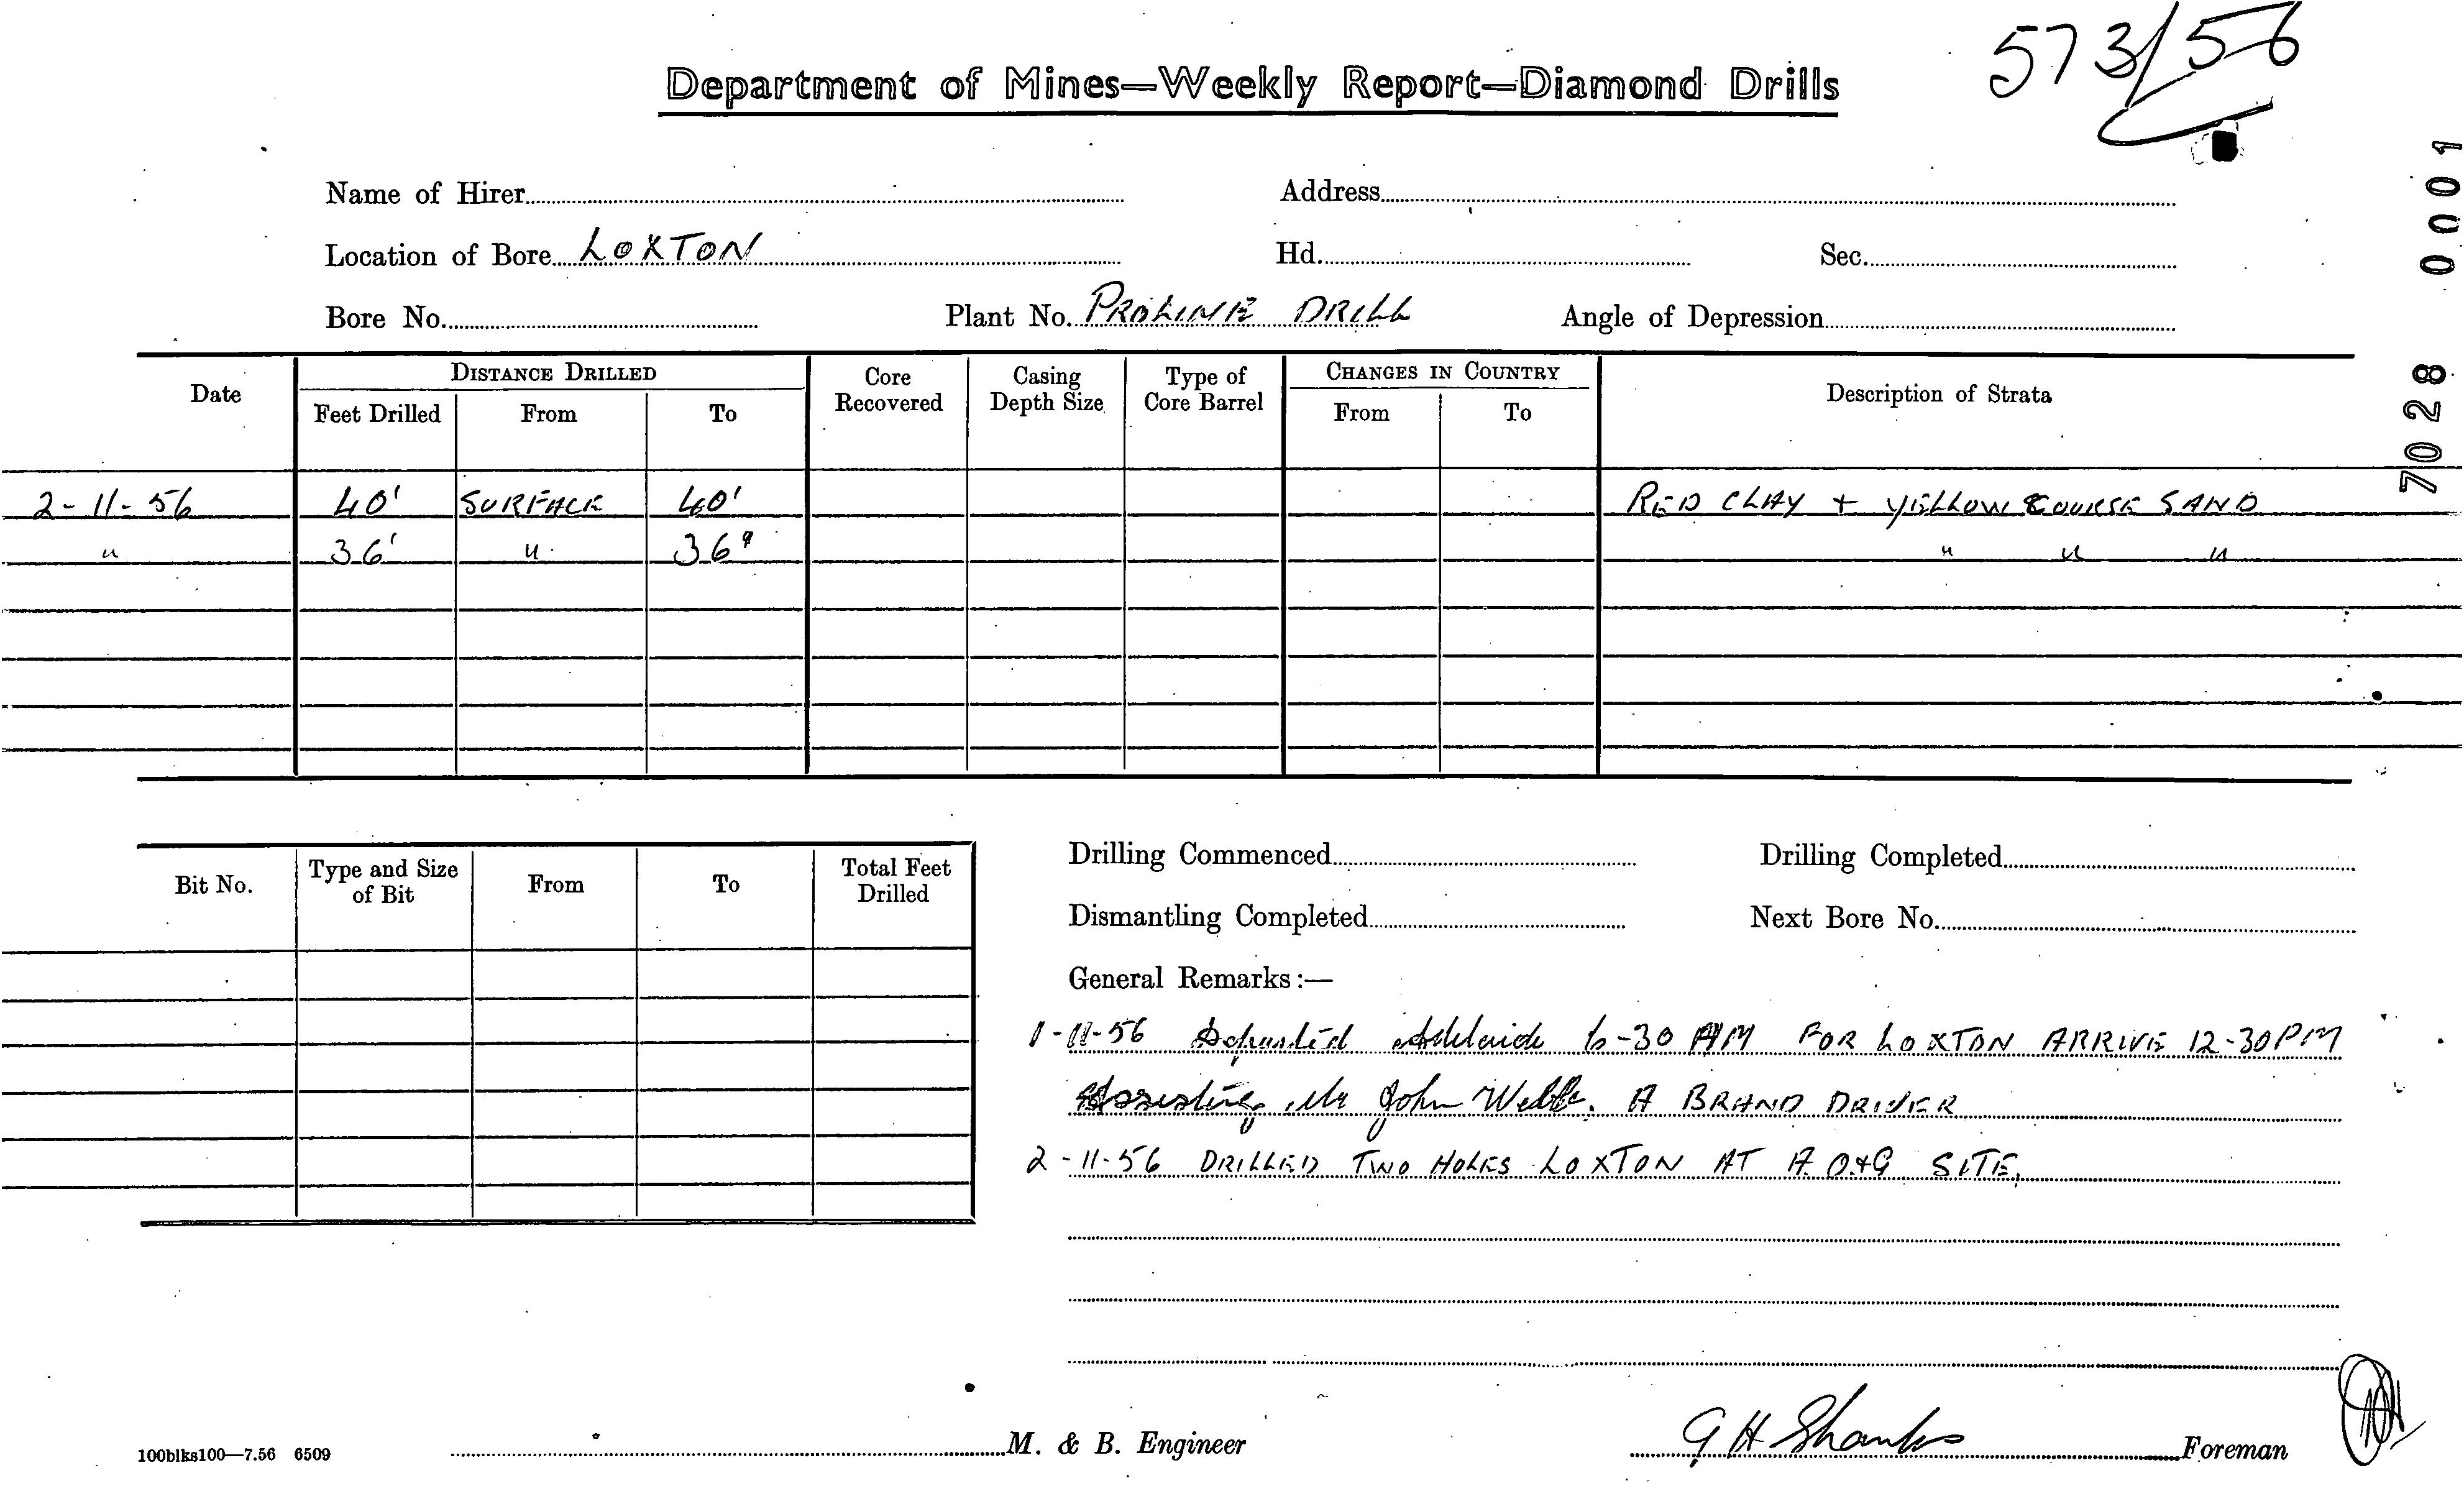 573/56
Department of Mines—Weekly Report—Diamond Drills
Name of Hirer
Address
Location of Bore LOXTON
Hd.
Sec.
Bore No.
Plant No. PROLINE DRILL
Angle of Depression
7028 0001
Date
DISTANCE DRILLED
Feet Drilled From To
Core Recovered
Casing Depth Size
Type of Core Barrel
CHANGES IN COUNTRY
From To
Description of Strata
2-11-56 40' SURFACE 40' RED CLAY + YELLOW COURSE SAND
" 36' " 36' " " "
Bit No.
Type and Size of Bit
From
To
Total Feet Drilled
Drilling Commenced
Drilling Completed
Dismantling Completed
Next Bore No.
General Remarks:—
1-11-56 Departed Adelaide 6-30 AM FOR LOXTON ARRIVE 12-30PM
Assisting Mr John Webb. A BRAND DRIVER
2-11-56 DRILLED TWO HOLES LOXTON AT A.O.+G SITE.
100blks100—7.56 6509
M. & B. Engineer
G H Shanks Foreman